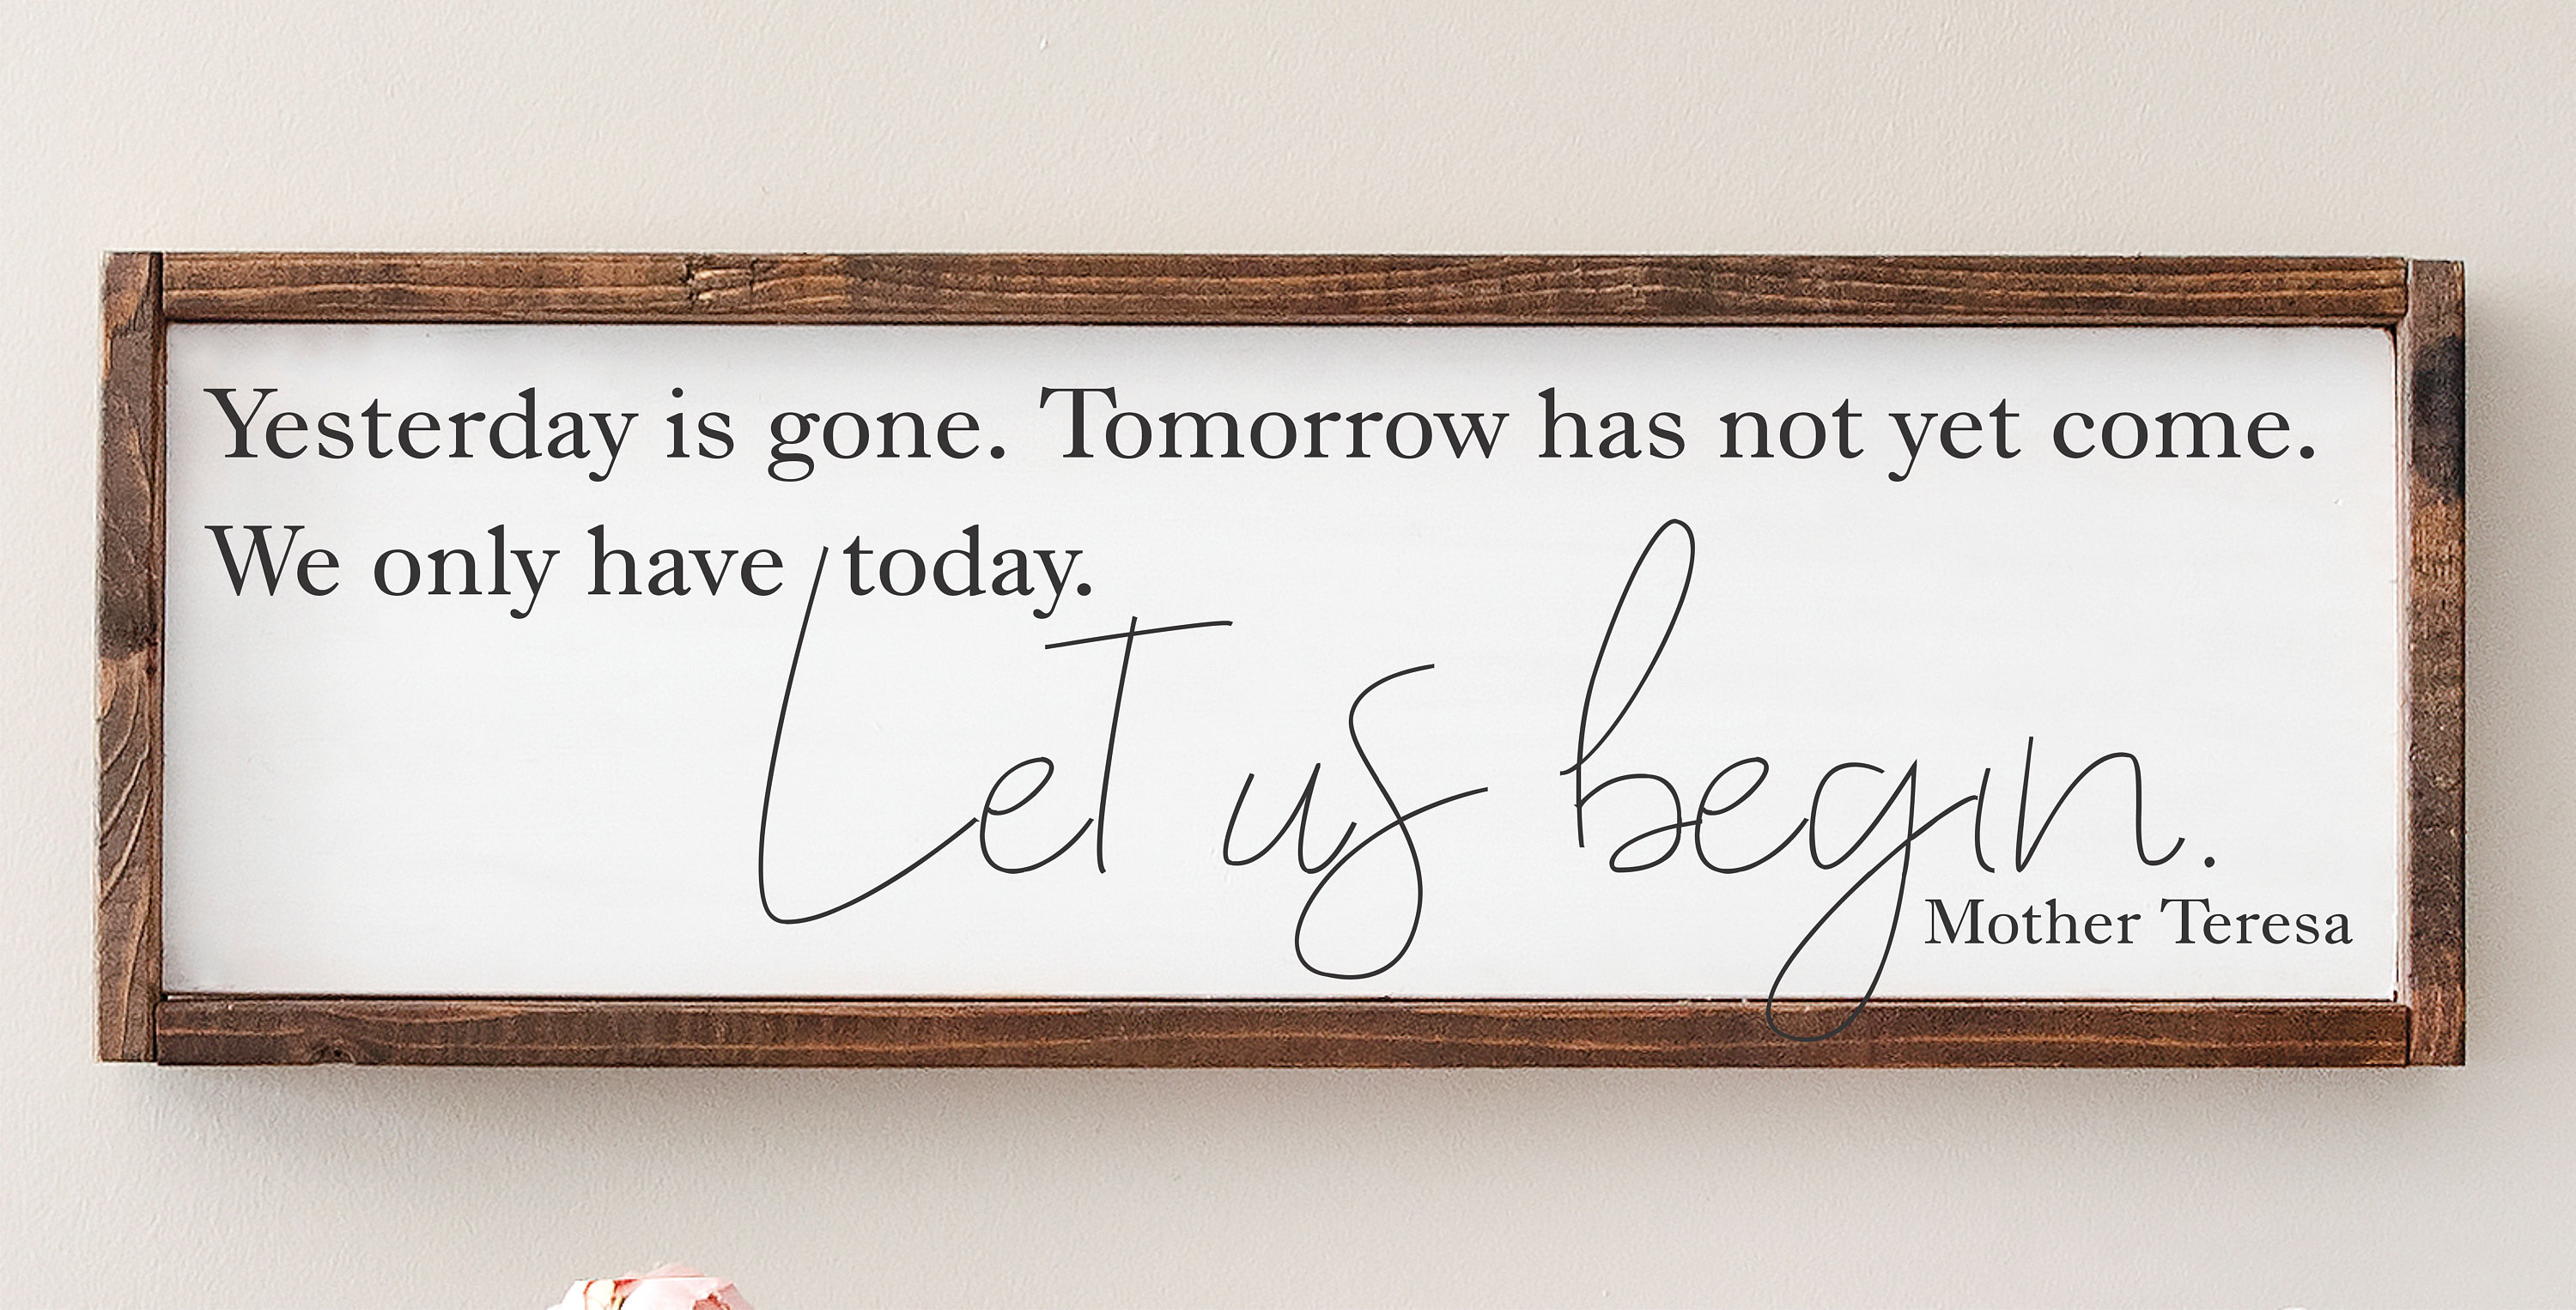 Yesterday is gone. Tomorrow has not yet come.
We only have today.
Let us begin.
Mother Teresa